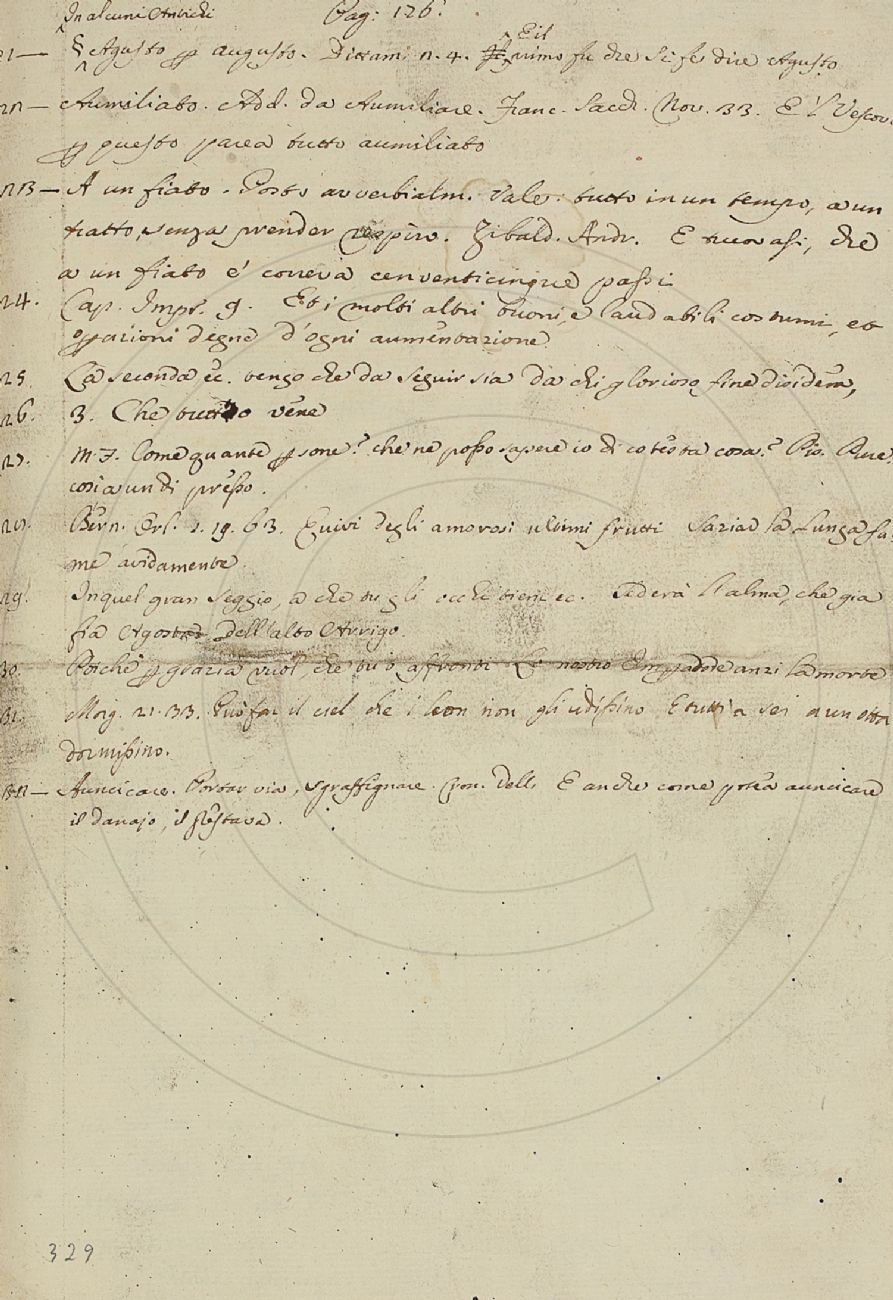 In alcuni Antichi Pag: 126.
21— § Agusto ꝑ augusto. Dittam. 2. 4. E il primo fu che si fe dire Agusto
22— Aumiliato. Add. da Aumiliare. Franc. Sacch. Nov. 33. E 'l Vescovo
ꝑ questo parea tutto aumiliato
23— A un fiato. Posto avverbialm. vale: tutto in un tempo, a un
tratto, senza prender respiro. Zibald. Andr. E truovasi, che
a un fiato e' correva cenventicinque passi
24. Cap. Impr. 9. Et i molti altri buoni, e laudabili costumi, et
oꝑazioni degne d'ogni aumentazione
25. La seconda ec. vengo che da seguir sia da chi glorioso fine disidera,
26. 3. Che tutto vene
27. M. F. Come quante ꝑsone? che ne posso sapere io di cotesta cosa? Rio. Due,
così a un di presso.
28. Bern. Orl. 2. 19. 63. Quivi degli amorosi ultimi frutti Saziar la lunga fa:
me avidamente
29. In quel gran Seggio, a che tu gli occhi tieni ec. Sederà l'alma, che già
fia Agosta dell'alto Arrigo.
30. Poichè ꝑ grazia vuol, che tu s'affronti Lo nostro Imꝑadore anzi la morte
31. Morg. 21. 33. Quò far il ciel che i leon non gli udissino E tutti a sei a un otta
dormissino.
32— Auncicare. Portar via, sgraffignare. Cron. Vell. E anche come potea auncicare
il danajo, il
329